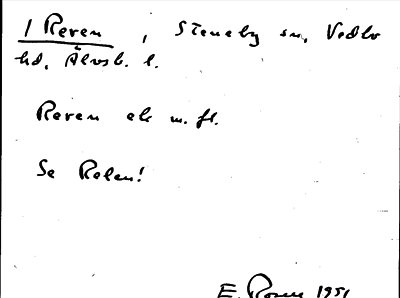 1 Reven, Steneby sn, Vedbo
hd, Älvsb. l.
Reven ek m. fl.
Se Relen!
E. Rosen 1951